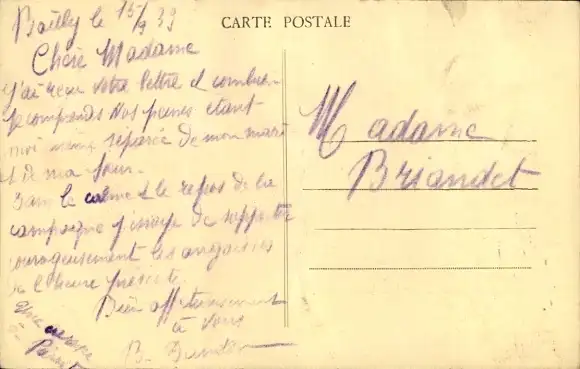 CARTE POSTALE
Bailly le 15/9 39
Chère Madame
j'ai reçu votre lettre et combien
je comprends vos peines étant
moi même séparée de mon mari
et de ma sœur.
Dans le calme et le repos de la
campagne j'essaye de supporter
courageusement les angoisses
de l'heure présente
Bien affectueusement
à vous
B.
Madame
Briandet